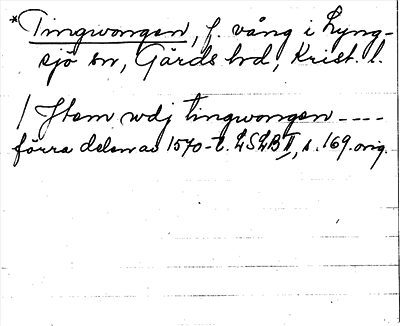 *Tingwongen, f. vång i Lyng-
sjö sn, Gärds hd, Krist. l.
/ Item wdj tingwongen ----
förra delen av 1570-t. LSLB II, s. 169. orig.